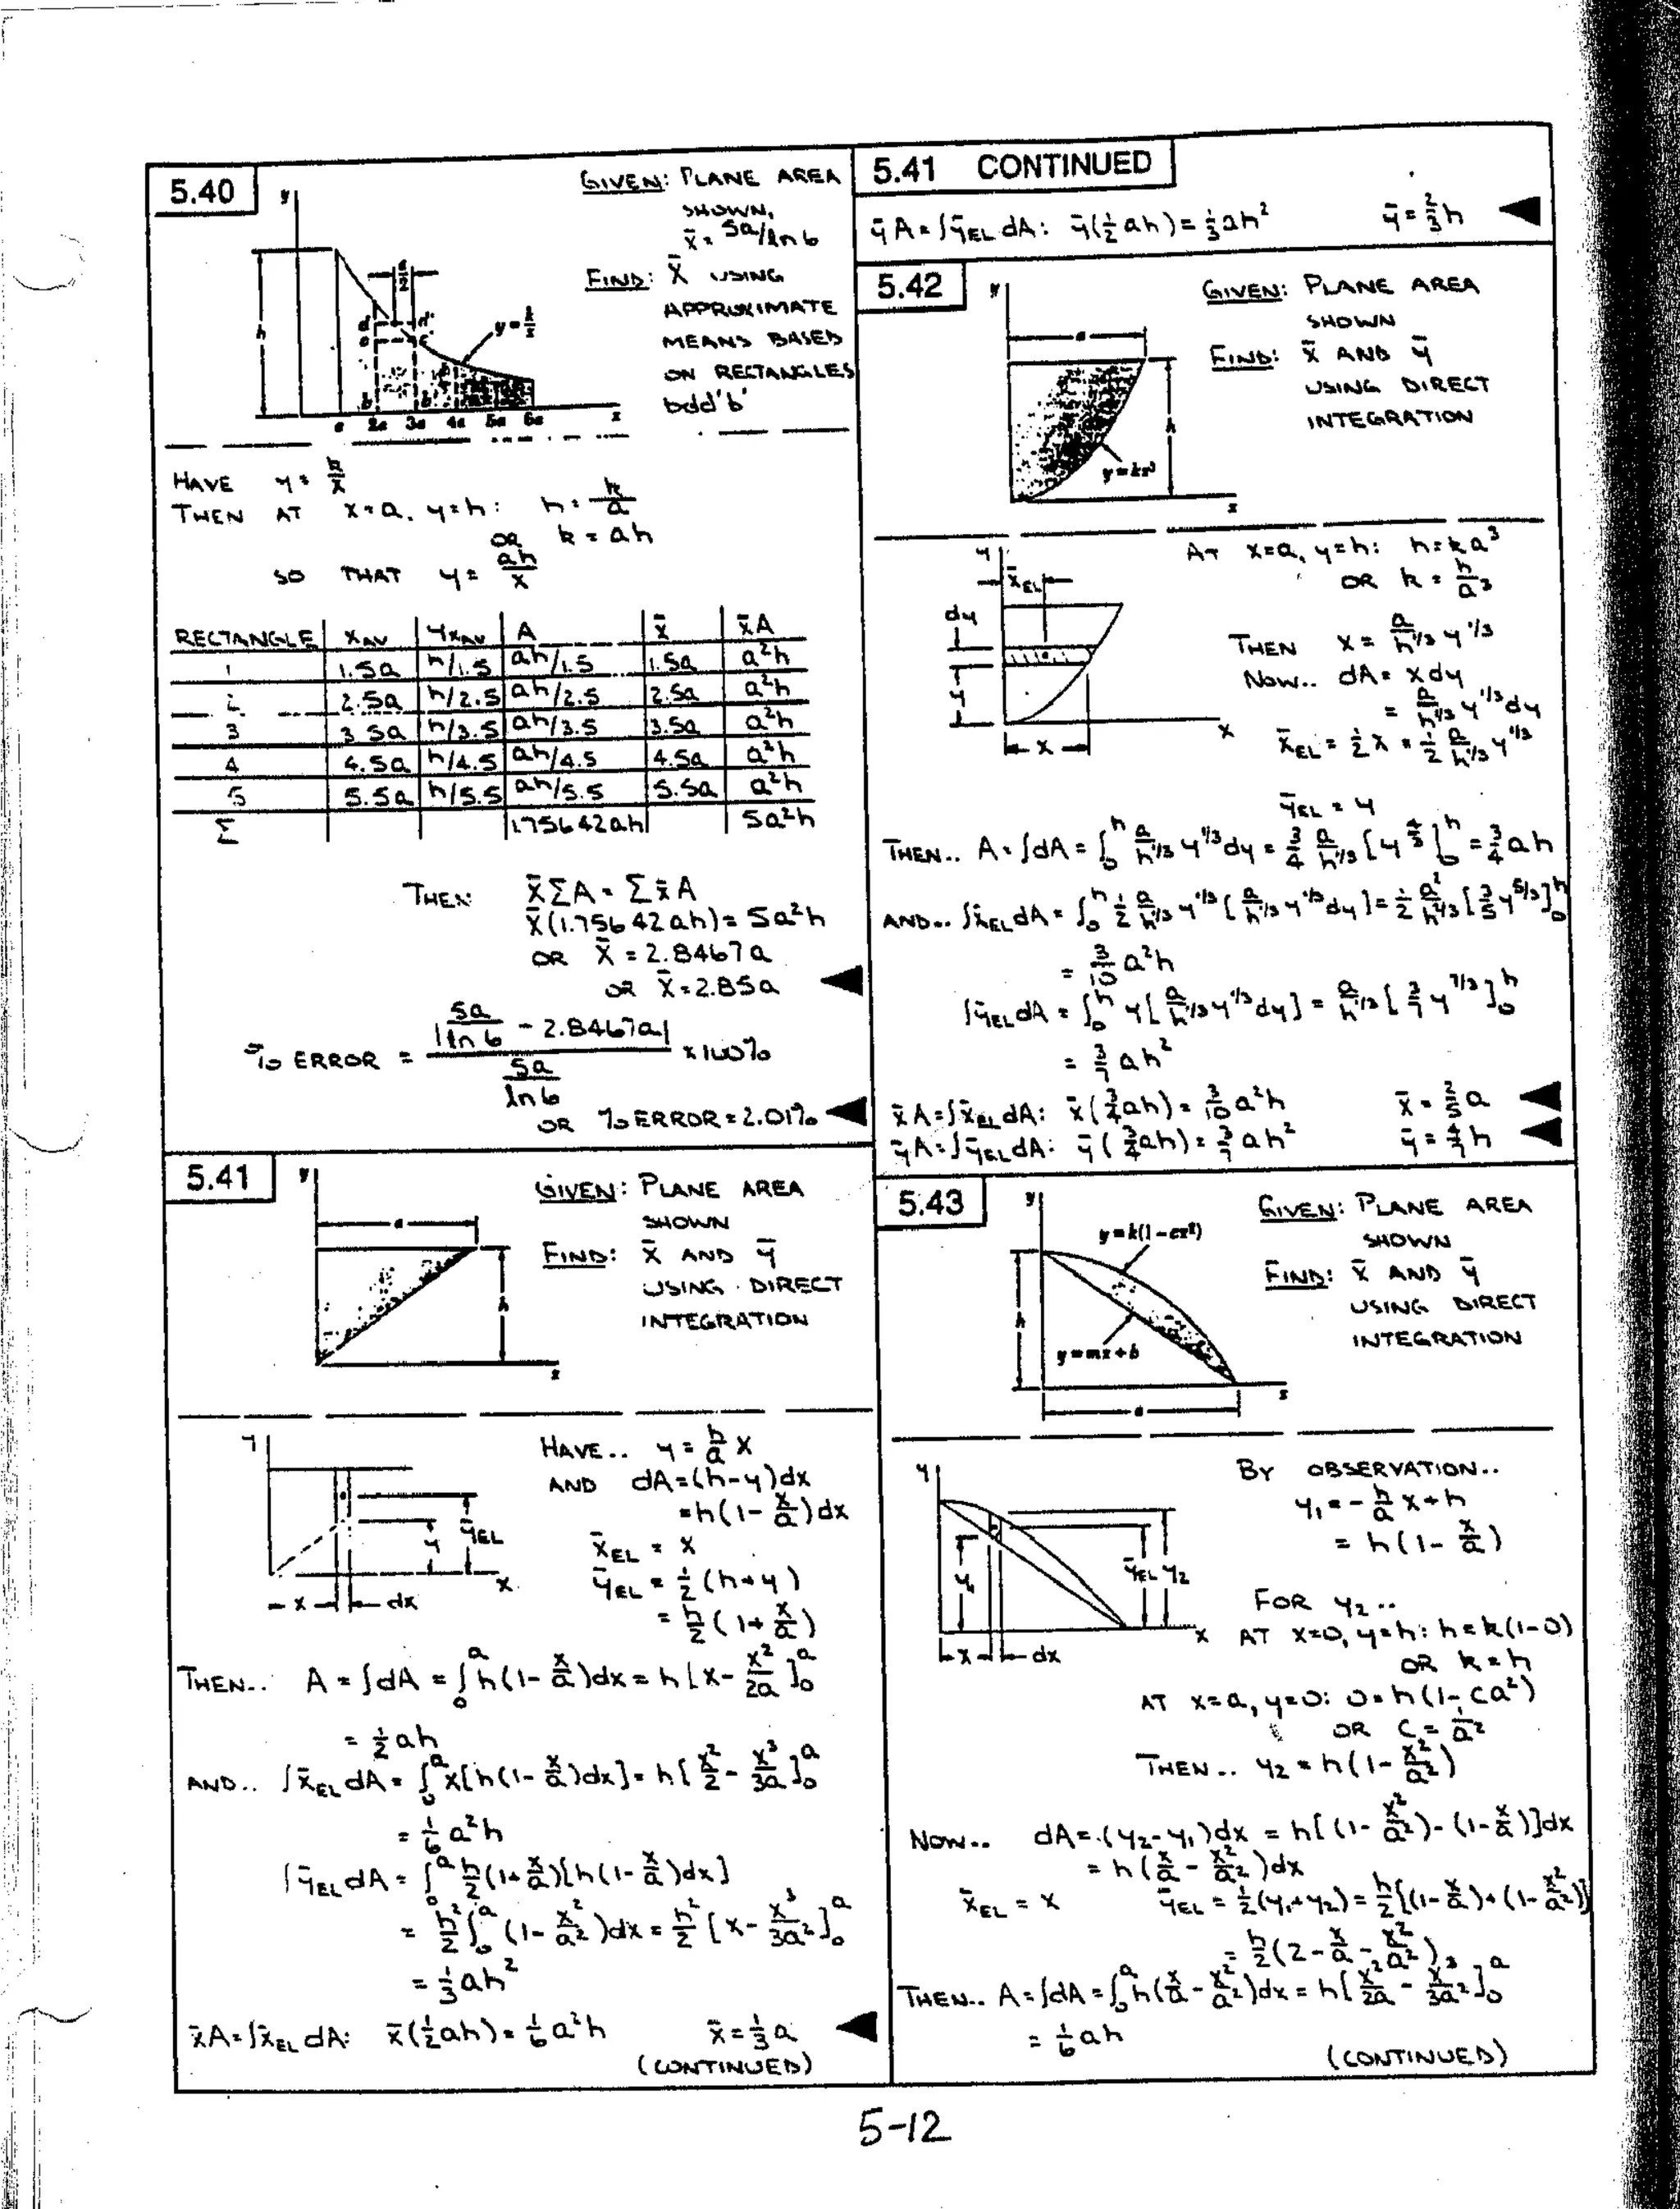 5.40
GIVEN: PLANE AREA
SHOWN,
x̄ = 5a/ln 6
FIND: X̄ USING
APPROXIMATE
MEANS BASED
ON RECTANGLES
bdd'b'
y
h
a/2
d d'
c c'
b b'
y = k/x
a 2a 3a 4a 5a 6a x
HAVE y = k/x
THEN AT x = a, y = h: h = k/a
OR k = ah
SO THAT y = ah/x
RECTANGLE | xAV | yxAV | A | x̄ | x̄A
1 | 1.5a | h/1.5 | ah/1.5 | 1.5a | a²h
2 | 2.5a | h/2.5 | ah/2.5 | 2.5a | a²h
3 | 3.5a | h/3.5 | ah/3.5 | 3.5a | a²h
4 | 4.5a | h/4.5 | ah/4.5 | 4.5a | a²h
5 | 5.5a | h/5.5 | ah/5.5 | 5.5a | a²h
Σ | | | 1.75642ah | | 5a²h
THEN: X̄ΣA = Σx̄A
X̄(1.75642ah) = 5a²h
OR X̄ = 2.8467a
OR X̄ = 2.85a ◀
% ERROR = |5a/ln 6 - 2.8467a| / (5a/ln 6) × 100%
OR % ERROR = 2.01% ◀
5.41
GIVEN: PLANE AREA
SHOWN
FIND: x̄ AND ȳ
USING DIRECT
INTEGRATION
y
a
h
x
y
ȳEL
y
x
x dx
HAVE.. y = h/a x
AND dA = (h-y)dx
= h(1 - x/a)dx
x̄EL = x
ȳEL = ½(h+y)
= h/2(1 + x/a)
THEN.. A = ∫dA = ∫₀ᵃ h(1 - x/a)dx = h[x - x²/2a]₀ᵃ
= ½ah
AND.. ∫x̄EL dA = ∫₀ᵃ x[h(1 - x/a)dx] = h[x²/2 - x³/3a]₀ᵃ
= 1/6 a²h
∫ȳEL dA = ∫₀ᵃ h/2(1 + x/a)[h(1 - x/a)dx]
= h²/2 ∫₀ᵃ (1 - x²/a²)dx = h²/2 [x - x³/3a²]₀ᵃ
= ⅓ah²
x̄A = ∫x̄EL dA: x̄(½ah) = 1/6 a²h x̄ = ⅓a ◀
(CONTINUED)
5.41 CONTINUED
ȳA = ∫ȳEL dA: ȳ(½ah) = ⅓ah² ȳ = ⅔h ◀
5.42
GIVEN: PLANE AREA
SHOWN
FIND: x̄ AND ȳ
USING DIRECT
INTEGRATION
y
a
h
y = kx³
x
y
x̄EL
dy
y
x
x
AT x = a, y = h: h = ka³
OR k = h/a³
THEN x = a/h^1/3 y^1/3
NOW.. dA = x dy
= a/h^1/3 y^1/3 dy
x̄EL = ½x = ½ a/h^1/3 y^1/3
ȳEL = y
THEN.. A = ∫dA = ∫₀ʰ a/h^1/3 y^1/3 dy = ¾ a/h^1/3 [y^4/3]₀ʰ = ¾ah
AND.. ∫x̄EL dA = ∫₀ʰ ½ a/h^1/3 y^1/3 [a/h^1/3 y^1/3 dy] = ½ a²/h^2/3 [3/5 y^5/3]₀ʰ
= 3/10 a²h
∫ȳEL dA = ∫₀ʰ y[a/h^1/3 y^1/3 dy] = a/h^1/3 [3/7 y^7/3]₀ʰ
= 3/7 ah²
x̄A = ∫x̄EL dA: x̄(¾ah) = 3/10 a²h x̄ = 2/5 a ◀
ȳA = ∫ȳEL dA: ȳ(¾ah) = 3/7 ah² ȳ = 4/7 h ◀
5.43
GIVEN: PLANE AREA
SHOWN
FIND: x̄ AND ȳ
USING DIRECT
INTEGRATION
y
y = k(1 - cx²)
h
y = mx + b
x
a
y
y₁
ȳEL y₂
x
x dx
BY OBSERVATION..
y₁ = - h/a x + h
= h(1 - x/a)
FOR y₂..
AT x=0, y=h: h = k(1-0)
OR k = h
AT x=a, y=0: 0 = h(1 - ca²)
OR C = 1/a²
THEN.. y₂ = h(1 - x²/a²)
NOW.. dA = (y₂ - y₁)dx = h[(1 - x²/a²) - (1 - x/a)]dx
= h(x/a - x²/a²)dx
x̄EL = x ȳEL = ½(y₁+y₂) = h/2[(1 - x/a) + (1 - x²/a²)]
= h/2(2 - x/a - x²/a²)
THEN.. A = ∫dA = ∫₀ᵃ h(x/a - x²/a²)dx = h[x²/2a - x³/3a²]₀ᵃ
= 1/6 ah
(CONTINUED)
5-12